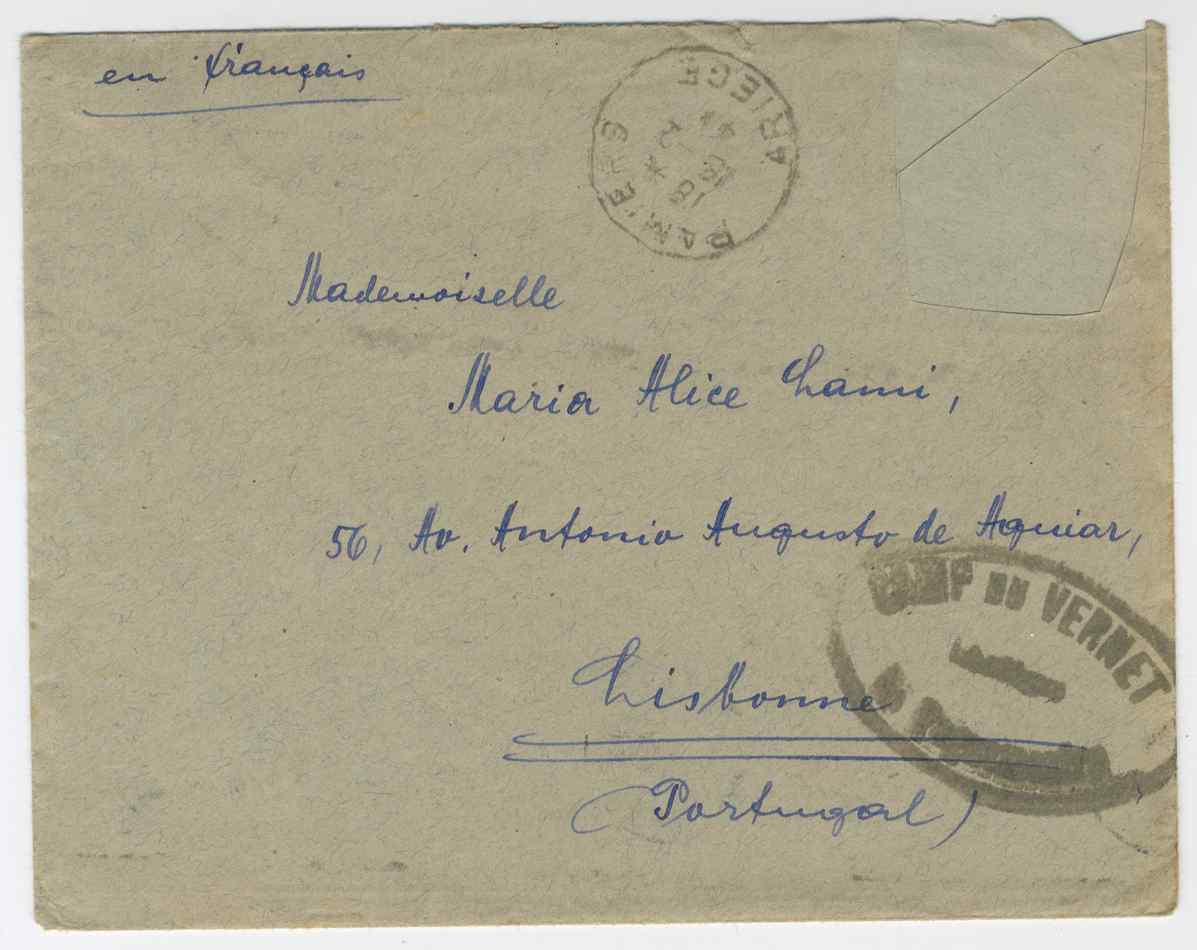 en français
PAMIERS
ARIEGE
Mademoiselle
Maria Alice Lami,
56, Av. Antonio Augusto de Aguiar,
CAMP DU VERNET
Lisbonne
(Portugal)